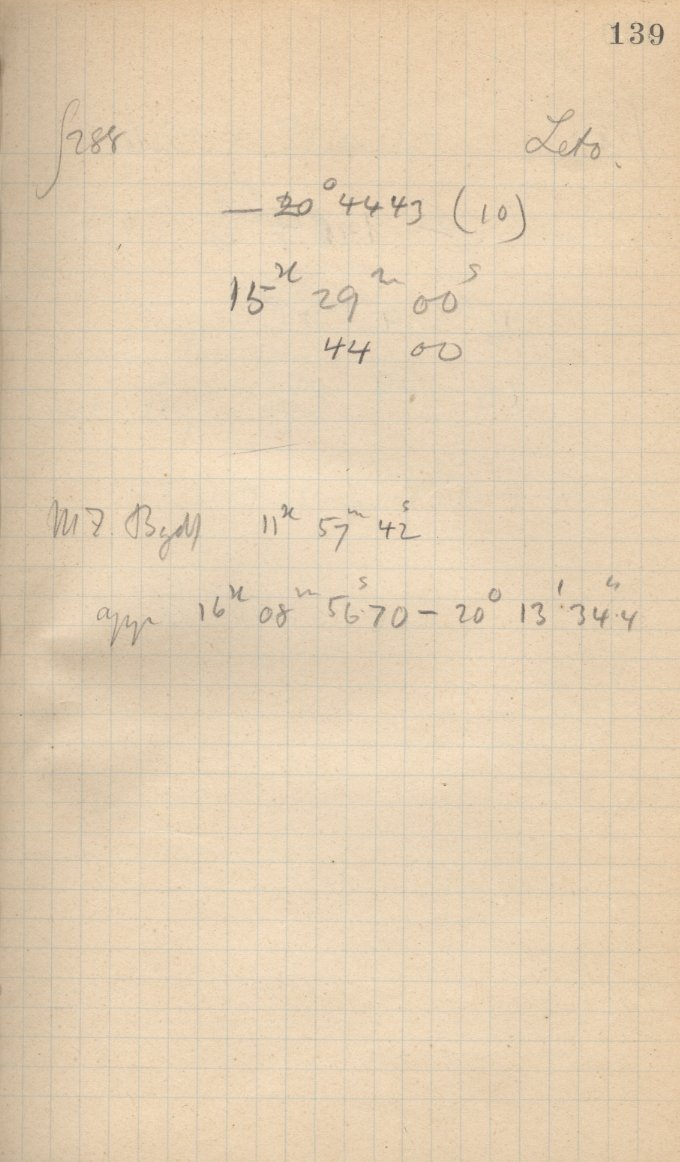 139
288 Leto.
— 20° 4443 (10)
15ʰ 29ᵐ 00ˢ
44 00
M Z. Bgdf 11ʰ 57ᵐ 42ˢ
app 16ʰ 08ᵐ 56ˢ.70 — 20° 13' 34".4